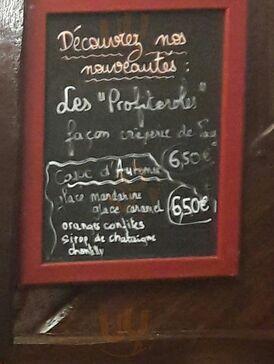 Découvrez nos
nouveautés :
Les "Profiteroles"
façon crêperie de
6,50€
Coup d'Automne
glace mandarine
glace caramel 6,50€
oranges confites
sirop de chataigne
chantilly